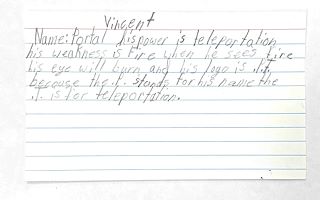 Vincent
Name: Portal his power is teleportation
his weakness is fire when he sees fire
his eye will burn and his logo is .t.
because the t. stands for his name the
.t. is for teleportation.